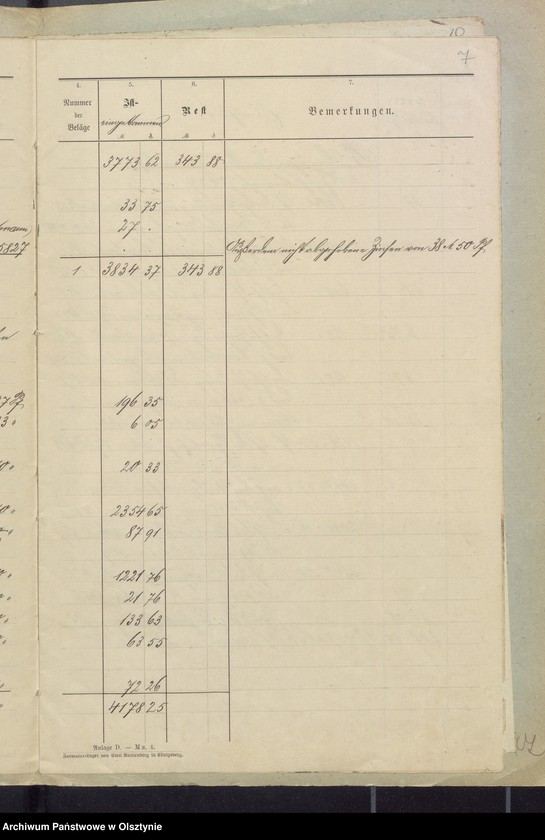 10
7
4. 5. 6. 7.
Nummer der Beläge
Ist-
eingekommen
Rest
Bemerkungen.
M. ₰. M. ₰.
3773 62 343 88
33 75
27 .
5827
Außerdem nicht abgehobene Zinsen von 38 M 50 Pf.
1 3834 37 343 88
196 35
6 05
20 33
2354 65
87 91
1221 76
21 76
133 63
63 55
72 26
4178 25
Anlage D. — M n. 4.
Archiwum Państwowe w Olsztynie